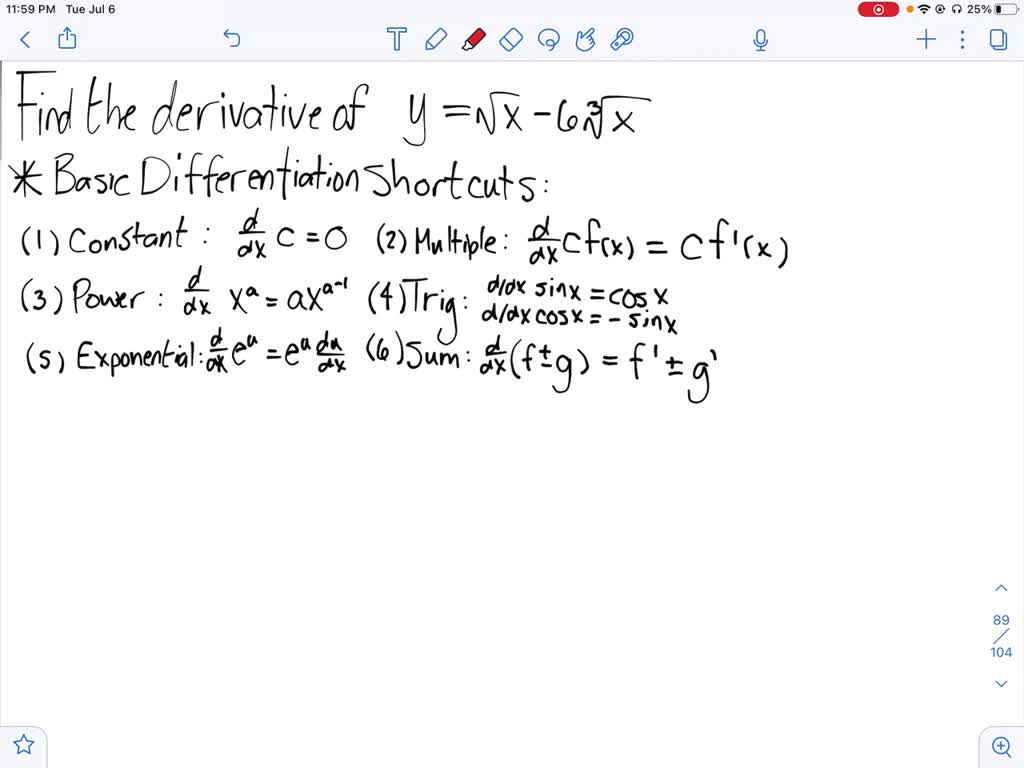 11:59 PM Tue Jul 6 25%
T
Find the derivative of y = √x - 6∛x
* Basic Differentiation Shortcuts:
(1) Constant: d/dx c = 0 (2) Multiple: d/dx cf(x) = cf'(x)
(3) Power: d/dx x^a = ax^(a-1) (4) Trig: d/dx sinx = cosx
d/dx cosx = - sinx
(5) Exponential: d/dx e^u = e^u du/dx (6) Sum: d/dx (f ± g) = f' ± g'
89
/
104